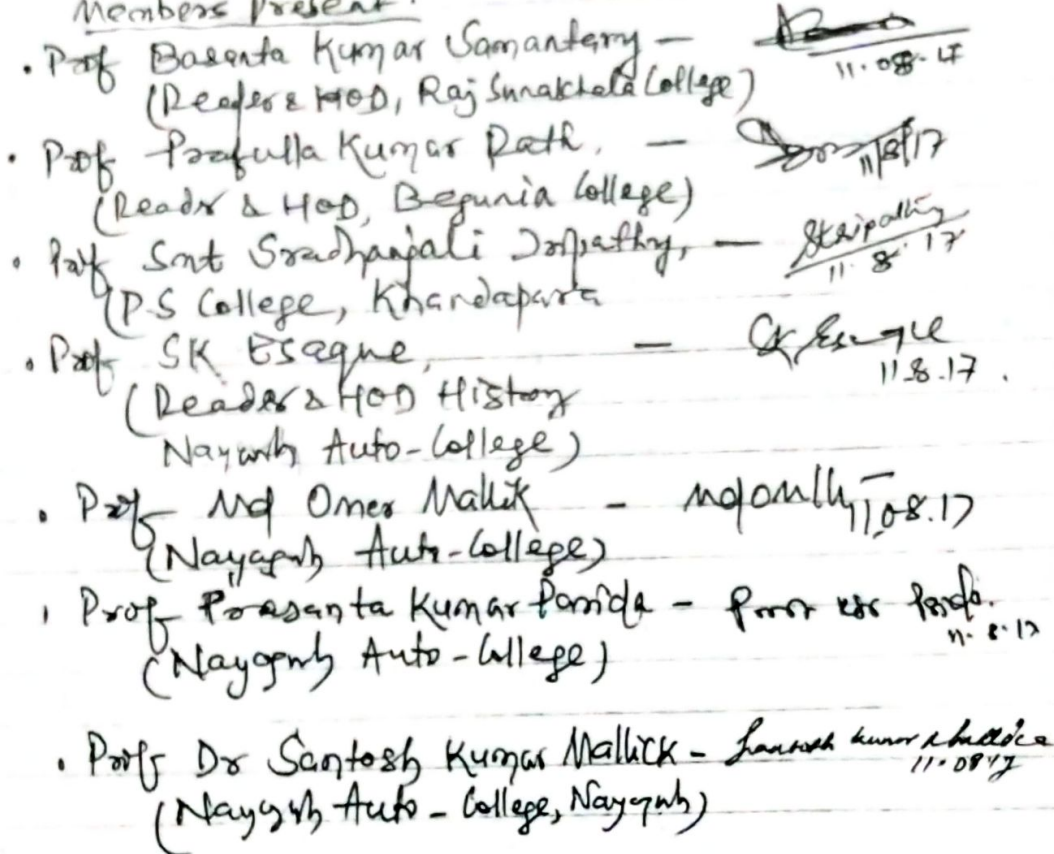 Members Present.
• Prof Basanta Kumar Samantary — 11.08.17
(Reader & HOD, Raj Sunakhela College)
• Prof Prafulla Kumar Rath. — 11/8/17
(Reader & HOD, Begunia College)
• Prof Smt Sradhanjali Tripathy, — STripathy
11.8.17
(P.S College, Khandapara
• Prof SK Esaque, — SK Esaque
11.8.17.
(Reader & HOD History
Nayagarh Auto-College)
• Prof Md Omer Mallik - 11.08.17
(Nayagarh Auto-College)
Prof Prasanta Kumar Parida -
11.8.17
(Nayagarh Auto-College)
• Prof Dr Santosh Kumar Mallick - Santosh kumar Mallick
11.08.17
(Nayagarh Auto-College, Nayagarh)